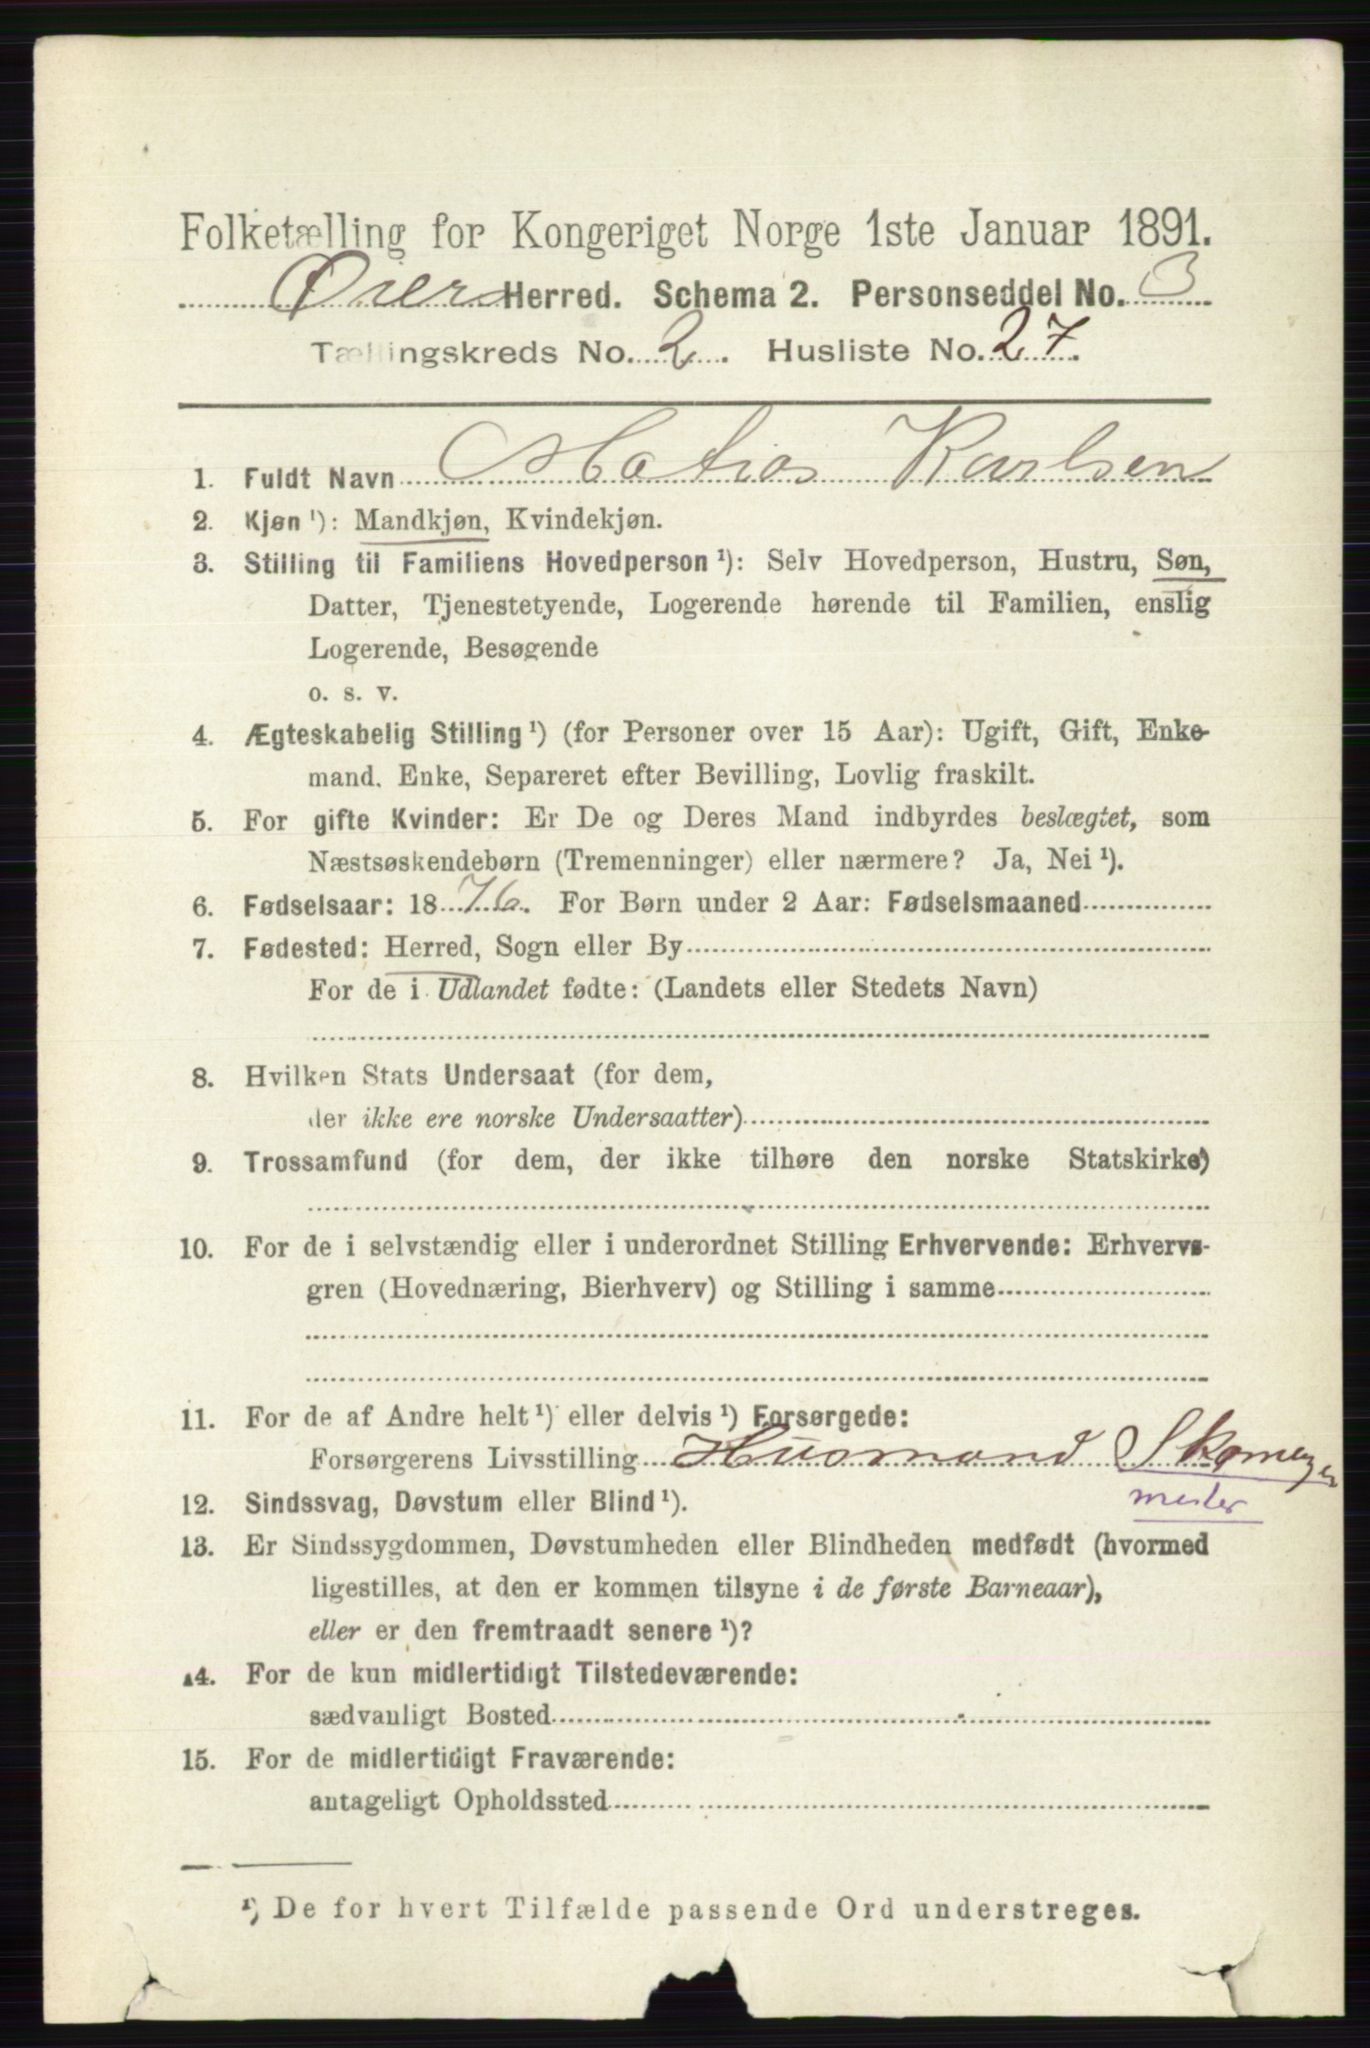 Folketælling for Kongeriget Norge 1ste Januar 1891.
Øier Herred. Schema 2. Personseddel No. 3
Tællingskreds No. 2. Husliste No. 27.
1. Fuldt Navn Matias Karlsen
2. Kjøn¹): Mandkjøn, Kvindekjøn.
3. Stilling til Familiens Hovedperson¹): Selv Hovedperson, Hustru, Søn,
Datter, Tjenestetyende, Logerende hørende til Familien, enslig
Logerende, Besøgende
o. s. v.
4. Ægteskabelig Stilling¹) (for Personer over 15 Aar): Ugift, Gift, Enke-
mand, Enke, Separeret efter Bevilling, Lovlig fraskilt.
5. For gifte Kvinder: Er De og Deres Mand indbyrdes beslægtet, som
Næstsøskendebørn (Tremenninger) eller nærmere? Ja, Nei¹).
6. Fødselsaar: 1876. For Børn under 2 Aar: Fødselsmaaned
7. Fødested: Herred, Sogn eller By
For de i Udlandet fødte: (Landets eller Stedets Navn)
8. Hvilken Stats Undersaat (for dem,
der ikke ere norske Undersaatter)
9. Trossamfund (for dem, der ikke tilhøre den norske Statskirke)
10. For de i selvstændig eller i underordnet Stilling Erhvervende: Erhvervs-
gren (Hovednæring, Bierhverv) og Stilling i samme
11. For de af Andre helt¹) eller delvis¹) Forsørgede:
Forsørgerens Livsstilling Husmand
12. Sindssvag, Døvstum eller Blind¹).
13. Er Sindssygdommen, Døvstumheden eller Blindheden medfødt (hvormed
ligestilles, at den er kommen tilsyne i de første Barneaar),
eller er den fremtraadt senere¹)?
14. For de kun midlertidigt Tilstedeværende:
sædvanligt Bosted
15. For de midlertidigt Fraværende:
antageligt Opholdssted
¹) De for hvert Tilfælde passende Ord understreges.